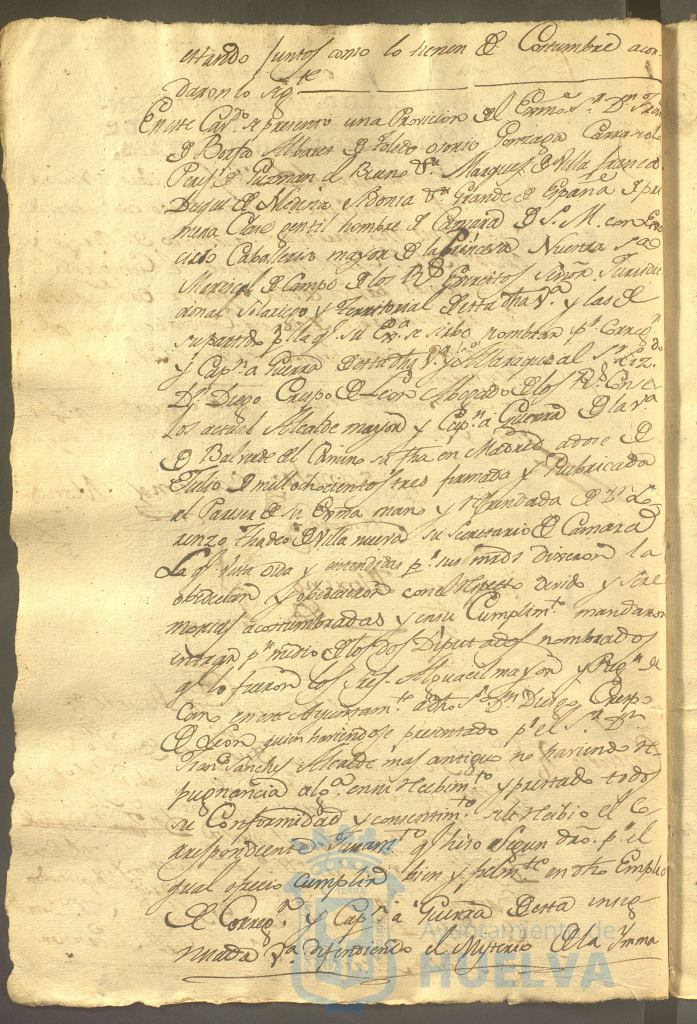 estando juntos como lo tienen de Costumbre acor
daron lo sigte
En este Cavdo se presento una Provision del Exmo Sr Dn Franco
de Borja Albares de Toledo osorio Gonzaga Caracciolo
Peres de Guzman el Bueno Marques de Villa franca
Duque de Medina Sidonia Grande de España de pri
mera Clase gentil hombre de Camara de S. M. con Exer
cicio Caballerizo mayor de la Princesa Nuestra Sra
Mariscal de Campo de los Rs Exercitos Señor Jurisdic
cional Solariego y Territorial de esta dha Va y las de
su partido pr la qe su Exa se sirbe nombrar pr Correxr
y Capn a Guerra de esta dha Va y su Marquesado al Sr Lizdo
Dn Diego Crespo de Leon Abogado de los Rs Conse
jos actual Alcalde mayor y Capn a Guerra de la Va
de Balverde del Camino su fha en Madrid a dose de
Julio de mil ochocientos tres firmada y Rubricada
al Pareser de su Exma mano y refrendada de Dn Lo
renzo Thadeo de Villanueva su Secretario de Camara
La qe vista oida y entendida pr sus mrds dixeron la
obedecian y obedecieron con el Respecto devido y Sere
monias acostumbradas y en su Cumplimto mandaron
entrar pr medio de los dos Diputados nombrados
qe lo fueron los Sres Alguacil mayor y Regor de
cano en este Ayuntamto a dho Sr Dn Diego Crespo
de Leon quien haviendose presentado pr el Sr Dn
Juan Sanches Alcalde mas antiguo no haviendo re
pugnancia alga en su Recibimto y prestado todos
su Conformidad y consentimto se le Recibio el Co
rrespondiente Juramto qe hiso segun dro pr el
qual ofrecio cumplir bien y fielmte en dho Empleo
de Corregr y Capn a Guerra de esta incig
nuada Va defendiendo el Misterio de la Ymma
Ayuntamiento de
HUELVA